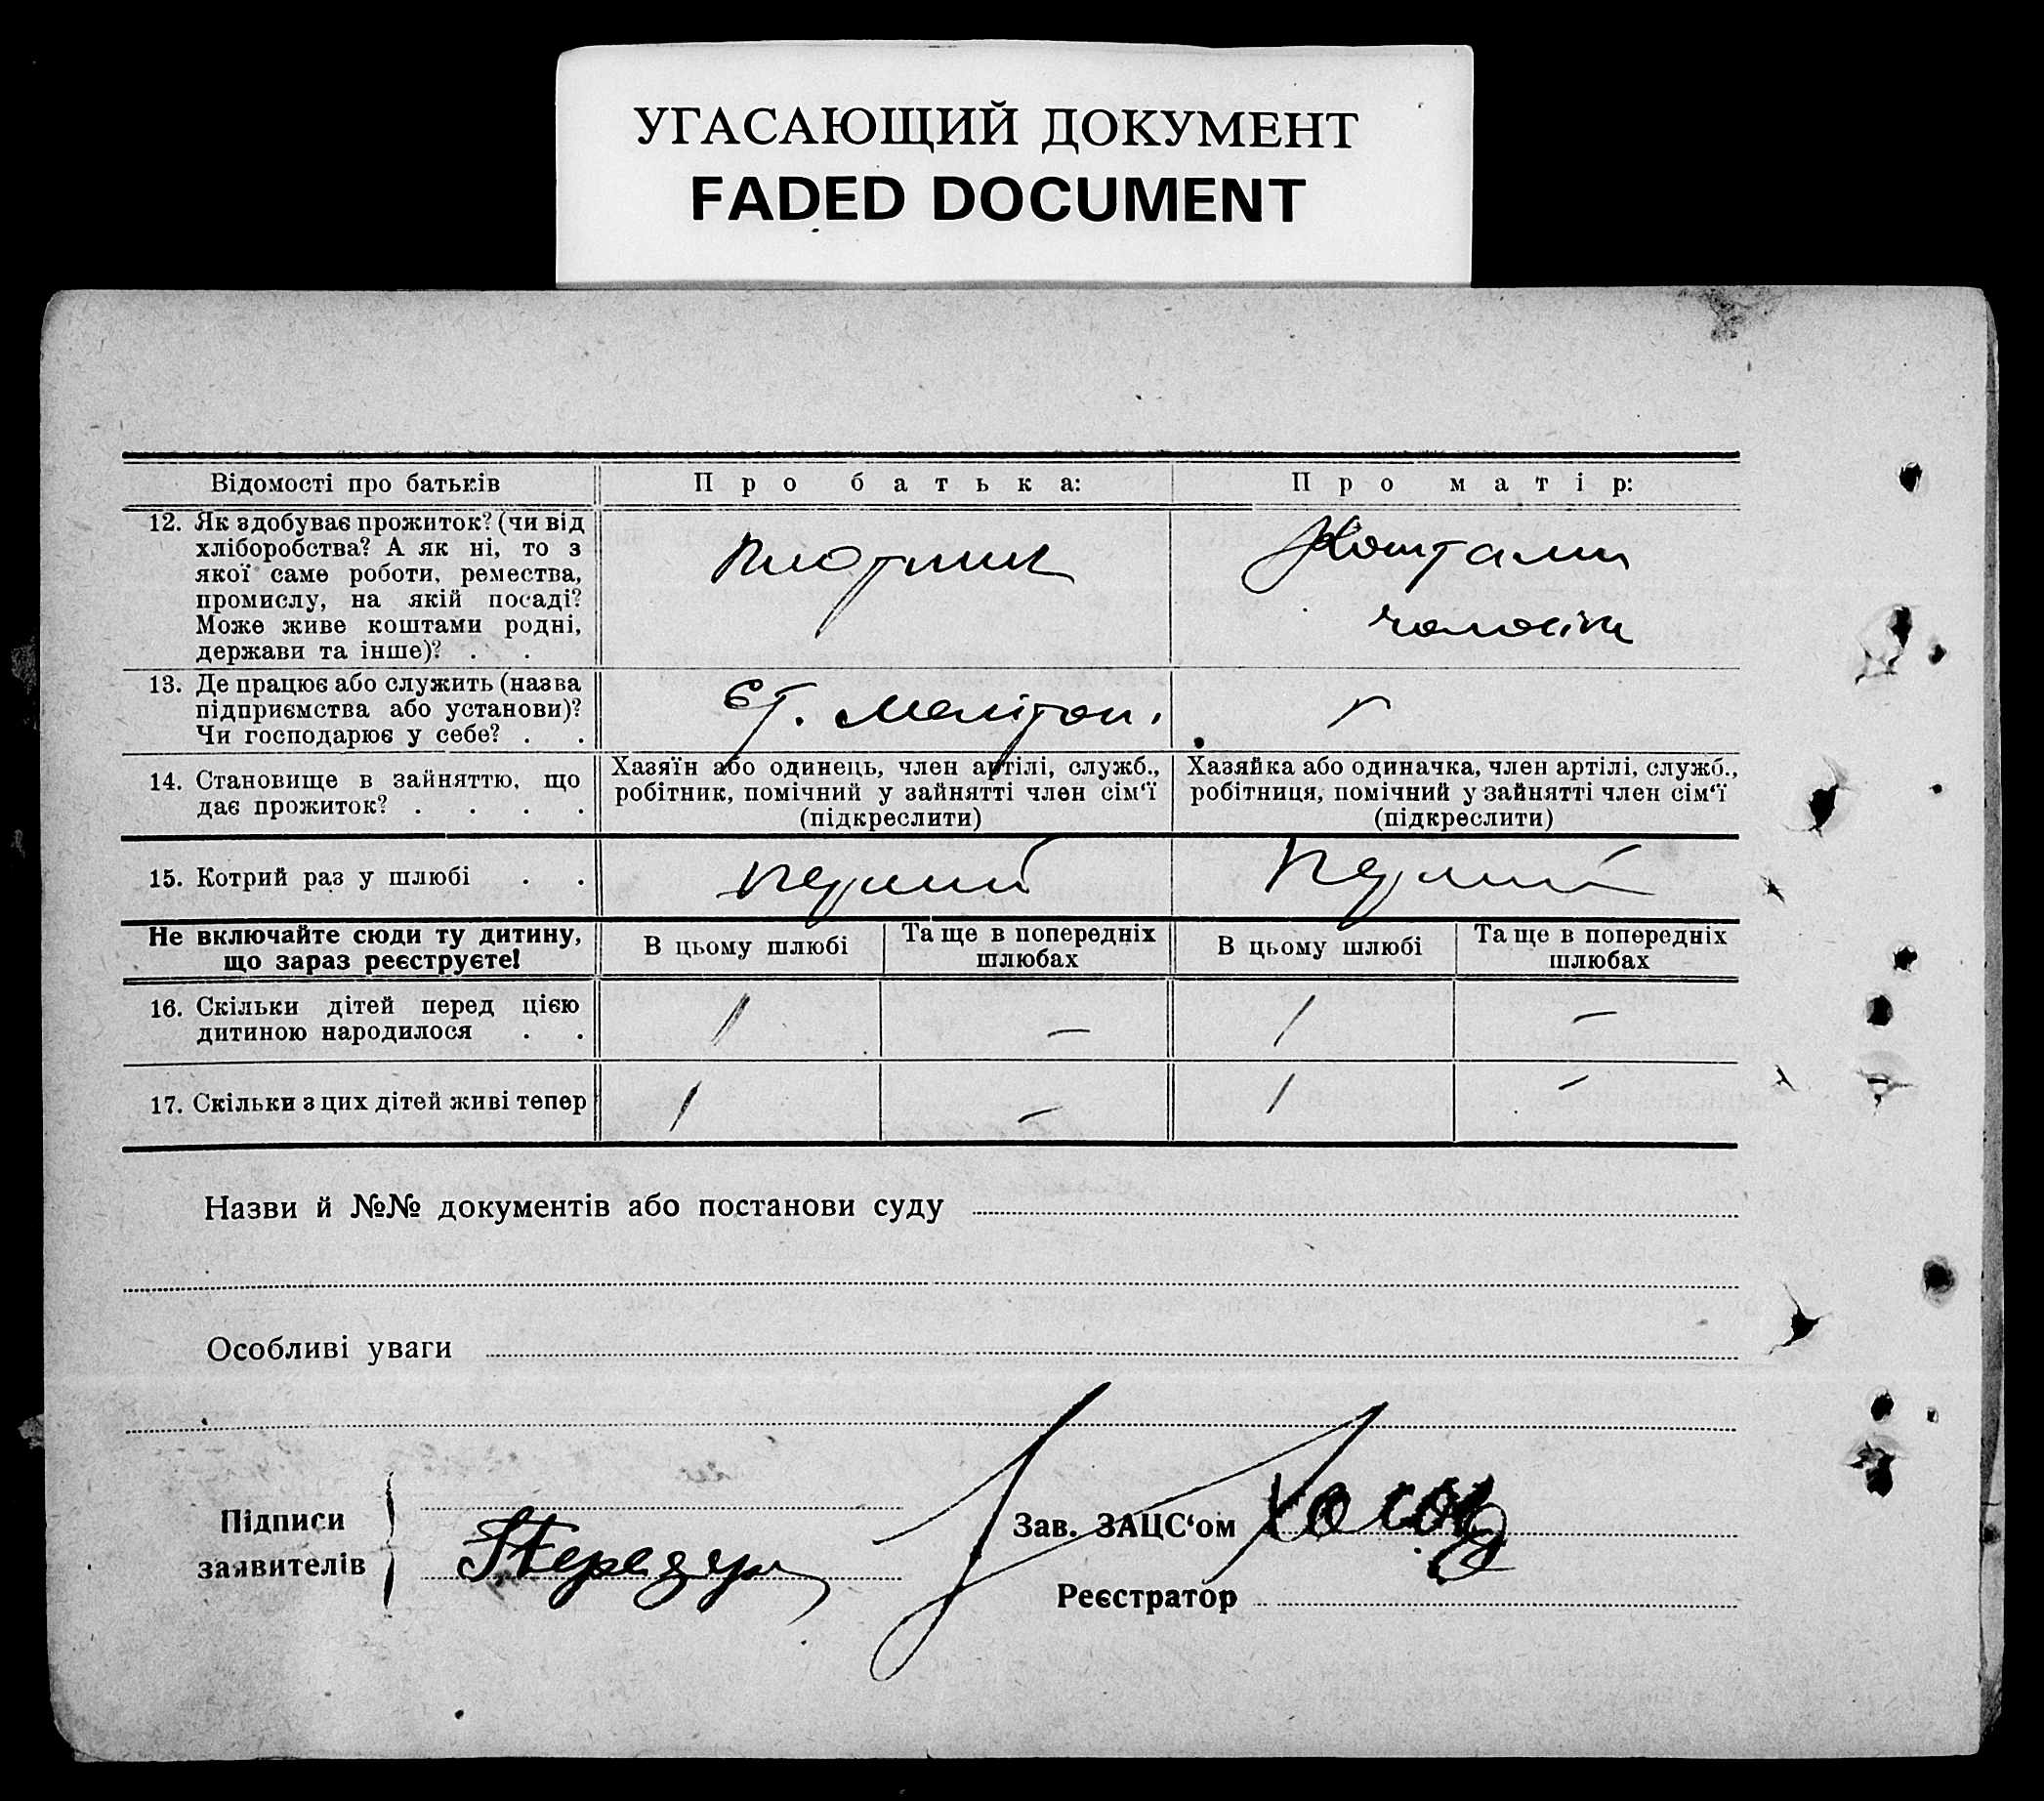 УГАСАЮЩИЙ ДОКУМЕНТ
FADED DOCUMENT
Відомості про батьків
Про батька:
Про матір:
12. Як здобуває прожиток? (чи від
хліборобства? А як ні, то з
якої саме роботи, ремества,
промислу, на якій посаді?
Може живе коштами родні,
держави та інше)? . .
Плотник
Коштами
чоловіка
13. Де працює або служить (назва
підприємства або установи)?
Чи господарює у себе? . .
ст. Мелітоп.
14. Становище в зайняттю, що
дає прожиток? . . . .
Хазяїн або одинець, член артілі, служб.,
робітник, помічний у зайнятті член сім‘ї
(підкреслити)
Хазяйка або одиначка, член артілі, служб.,
робітниця, помічний у зайнятті член сім‘ї
(підкреслити)
15. Котрий раз у шлюбі . .
Перший
Перший
Не включайте сюди ту дитину,
що зараз реєструєте!
В цьому шлюбі
Та ще в попередніх
шлюбах
В цьому шлюбі
Та ще в попередніх
шлюбах
16. Скільки дітей перед цією
дитиною народилося . .
1
—
1
—
17. Скільки з цих дітей живі тепер
1
—
1
—
Назви й №№ документів або постанови суду
Особливі уваги
Підписи
заявителів
Зав. ЗАЦС‘ом
Реєстратор